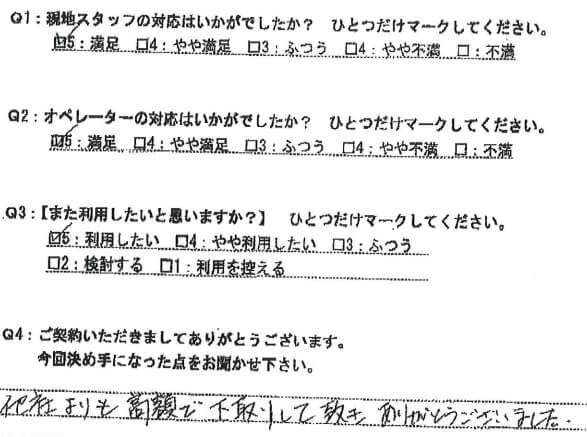 Q1：現地スタッフの対応はいかがでしたか？　ひとつだけマークしてください。
☑5：満足　□4：やや満足　□3：ふつう　□4：やや不満　□：不満
Q2：オペレーターの対応はいかがでしたか？　ひとつだけマークしてください。
☑5：満足　□4：やや満足　□3：ふつう　□4：やや不満　□：不満
Q3：【また利用したいと思いますか？】　ひとつだけマークしてください。
☑5：利用したい　□4：やや利用したい　□3：ふつう
□2：検討する　□1：利用を控える
Q4：ご契約いただきましてありがとうございます。
今回決め手になった点をお聞かせ下さい。
他社よりも高額で下取りして頂き ありがとうございました。